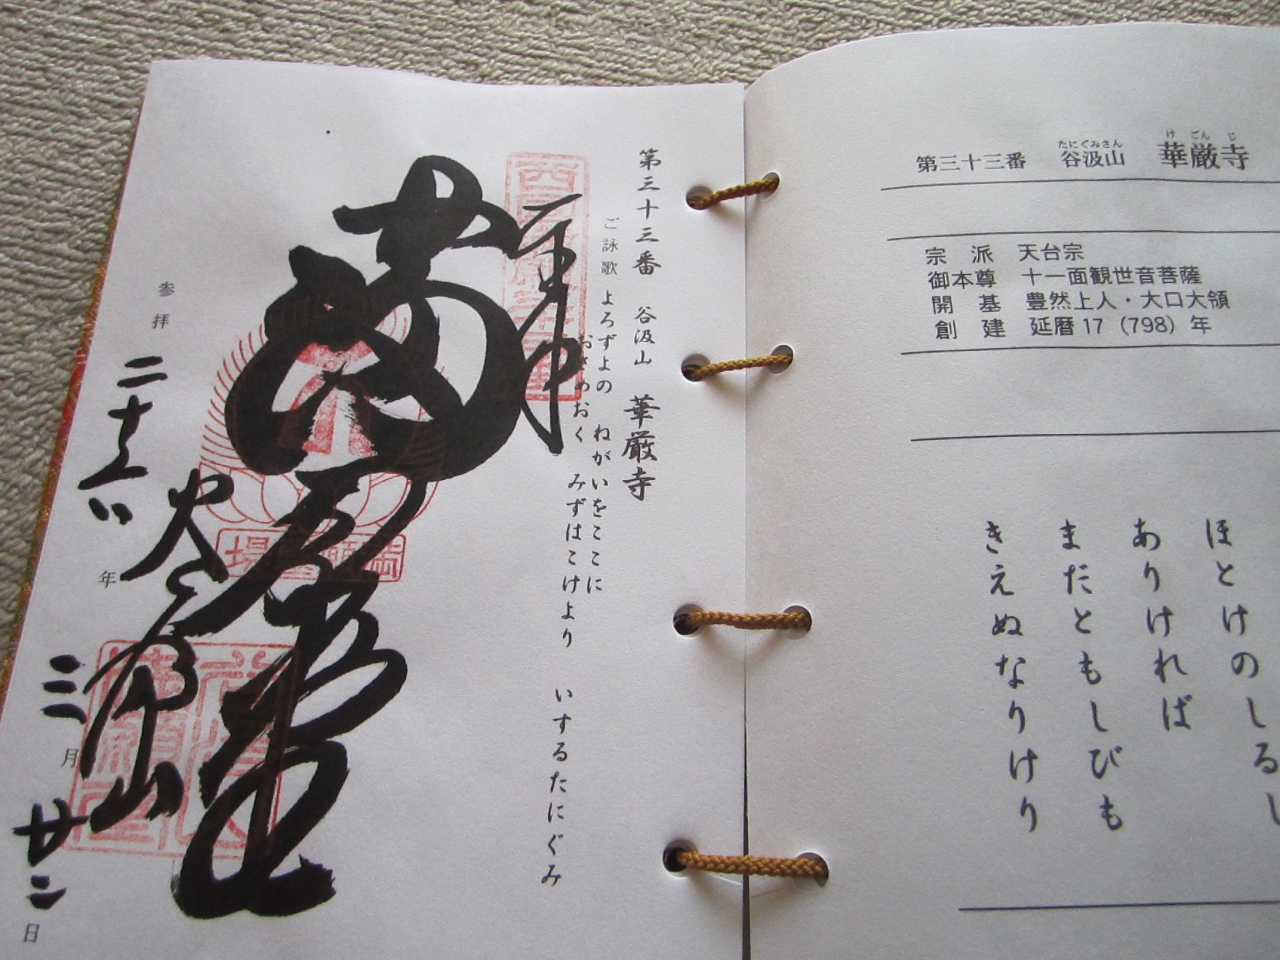 たにぐみさん けごんじ
第三十三番 谷汲山 華厳寺
宗派 天台宗
御本尊 十一面観世音菩薩
開基 豊然上人・大口大領
創建 延暦17（798）年
ほとけのしるし
ありければ
まだともしびも
きえぬなりけり
第三十三番 谷汲山 華厳寺
ご詠歌 よろずよの ねがいをここに
おさめおく みずはこけより いするたにぐみ
奉拝
満願堂
谷汲山
参拝 二十八年 三月 廿二日